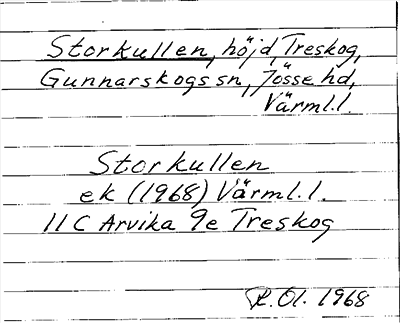 Storkullen, höjd, Treskog,
Gunnarskogs sn, Jösse hd,
Värml.l.
Storkullen
ek (1968) Värml.l.
11 C Arvika 9e Treskog
R.Ol. 1968